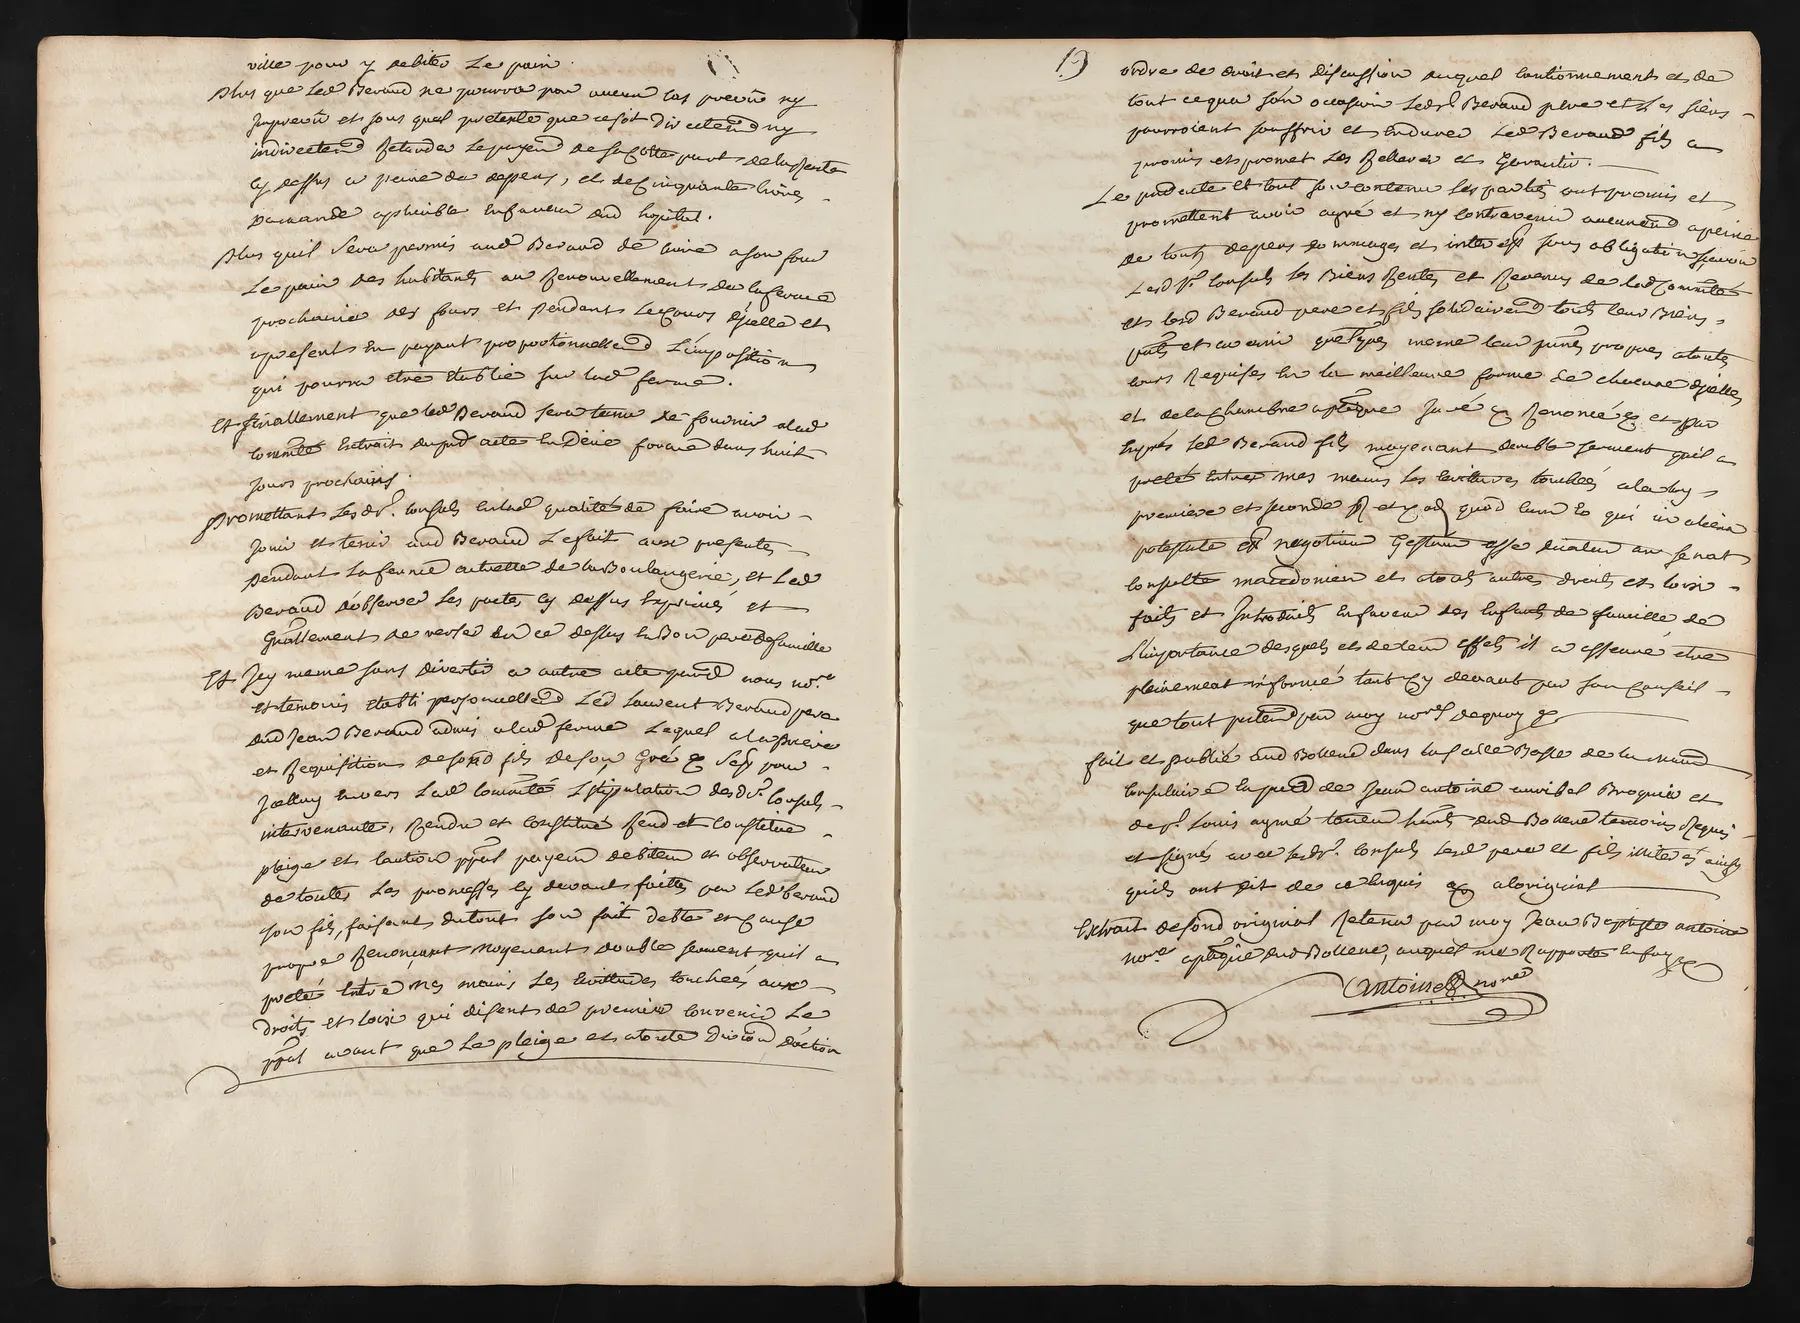 ville pour y debiter Le pain
Plus que Led Beraud ne pourra pour aucun cas preveu ny
Impreveu et sous quel pretexte que ce soit directemd ny
indirectemd Retarder Le payemd de sa Cotte part de la Rente
Cy dessus a peine de depens, et de Cinquante livres
Damande aplicable En faveur dud hopital.
Plus quil sera permis aud Beraud de cuire a son four
Le pain des habitants au Renouvellement de la ferme
prochaine des fours et Pendant Le Cours d'jcelle et
apresent En payant proportionnellemd L'imposition
qui pourra etre Etablie sur lad ferme.
Et finallement que led Beraud sera tenu de fournir alad
Commté Extrait du pnt acte En Deüe forme dans huit
Jours prochains.
Promettant Lesd srs. Consuls En lad qualité de faire avoir
Jouir et tenir aud Beraud Le fait aux presentes
Pendant La ferme actuelle de la Boulangerie, et Led
Beraud d'observer Les pactes Cy dessus Exprimés et
Gnallement de verser En ce dessus En Bon pere de famille
Et Jcy meme sans divertir a autre acte pard nous nore
et temoins Etabli personnellemd Led Laurent Beraud pere
dud Jean Beraud admis alad ferme Lequel a la Priere
et Requisition de sond fils de son Gré &c s'est pour
Jcelluy Envers Lad Commté Lstipulation desd srs Consuls
intervenante, Rendu et Constitué Rend et Constitue
pleige et Caution ppal payeur debiteur et observateur
de toutes Les promesses Cy devant faittes par Led beraud
son fils, faisant du tout son fait debte et Cause
propre Renonçant moyenant double serment quil a
preté Entre mes mains Les Ecritures touchées aux
droits et Loix qui disent de premier Convenir Le
ppal avant que Le pleige et a toute Division d'action
19
ordre de droit et discussion duquel Cautionnement et de
tout ce qua son occasion Ledt Beraud pere et Les siens
pourroient souffrir et Endurer Led Beraud fils a
promis et promet Les Relever et Garantir.
Le pnt acte Et tout son contenu Les parties ont promis et
promettent avoir agreé et ny Contrevenir aucunemd a peine
de tous depens dommages et interest sous obligation sçavoir
Lesd srs Consuls les Biens Rentes et Revenus de lad Commté
et lesd Beraud pere et fils solidairemd tous leur Biens
pnts et avenir quelques meme leur pnes propres a toutes
Cours Requises En la meilleure forme de chacune d'jcelles
et de la Chambre aplique Juré &c Renoncé &c et par
Exprés Led Beraud fils moyenant double serment quil a
preté Entre mes mains Les Ecritures touchées a la Loy
premiere et seconde ff et C ad quod Cum Eo qui in aliena
potestate est negotium Gestum esse dicatur au Senat
Consulte macedonien et a tous autres droits et Loix
faits et Introduits En faveur des Enfants de famille de
L'importance desquels et de leur Effets il a asseuré etre
pleinement informé tant Cy devant par son Conseil
que tout presentemd par moy nore dequoy &c
fait et publié aud Bollene dans la salle Basse de la maison
Consulaire En pnce de Jean antoine annibal Broquier et
de sr. Louis aymé habts dud Bollene temoins Requis
et signés avec lesdt. Consuls Lesd pere et fils illiterés ainsy
quils ont dit de ce Enquis &c a loriginal
Extrait de sond original Retenu par moy Jean Baptiste antoine
nore aplique dud Bollene, auquel me Rapporte En foy &c
Antoine nore